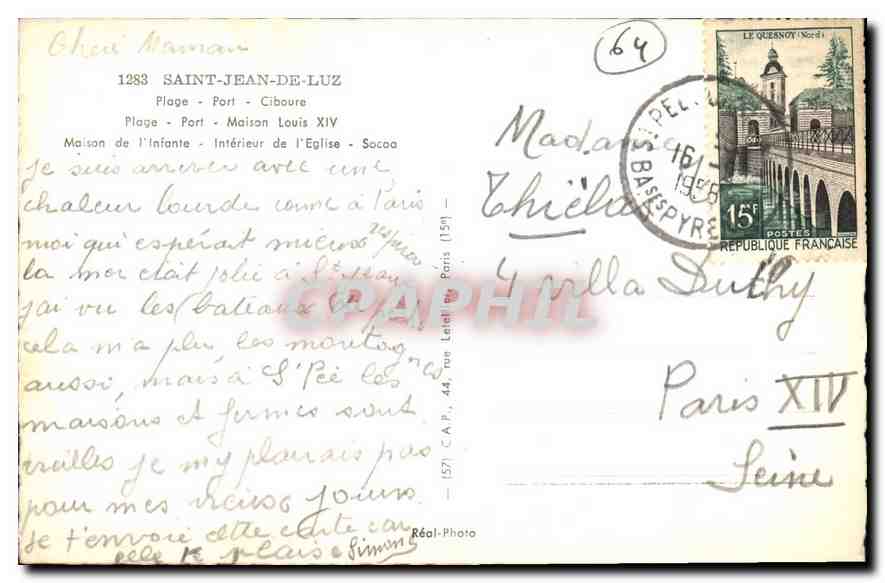 Cheré Maman
1283 SAINT-JEAN-DE-LUZ
Plage - Port - Ciboure
Plage - Port - Maison Louis XIV
Maison de l'Infante - Intérieur de l'Eglise - Socoa
je suis arrivée avec une
chaleur lourde come à Paris
moi qui espérait mieux
la mer était jolie à St Jean
j'ai vu les bateaux
cela m'a plu les montagnes
aussi, mais à St Pée les
maisons et fermes sont
vieilles je m'y plairais pas
pour mes vieux jours
je t'envoie cette carte car
elle te plaise Simone
Réal-Photo
— (57) C.A.P., 44, rue Letellier, Paris (15e) —
64
LE QUESNOY (Nord)
15F
POSTES
REPUBLIQUE FRANÇAISE
ST PEE
16
1958
BASSES PYRE
Madame
4 villa Duthy
Paris XIV
Seine
CPAPHIL